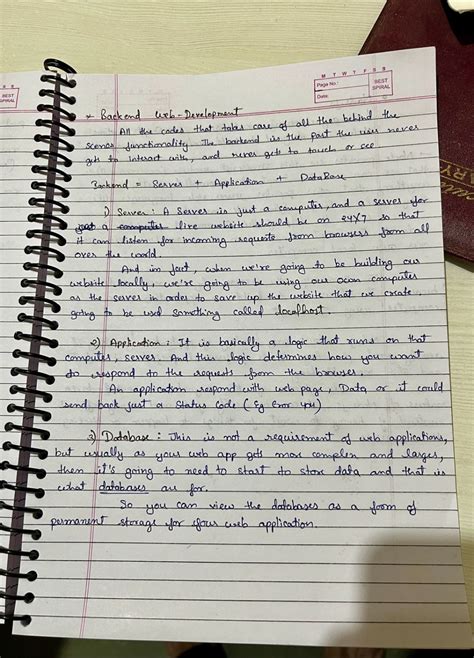 M T W T F S S
Page No.:
Date:
BEST
SPIRAL
S S
BEST
SPIRAL
* Backend Web-Development
All the codes that takes care of all the behind the
scenes functionality. The backend is the part the user never
gets to interact with, and never gets to touch or see.
Backend = Server + Application + DataBase
1) Server : A Server is just a computer, and a server for
a live website should be on 24X7 so that
it can listen for incoming requests from browsers from all
over the world.
And in fact, when we're going to be building our
website locally, we're going to be using our own computer
as the server in order to serve up the website that we create
going to be used something called localhost.
2) Application : It is basically a logic that runs on that
computer, server. And this logic determines how you want
to respond to the requests from the browser.
An application respond with web page, Data or it could
send back just a Status Code (Eg Error 404)
3) Database : This is not a requirement of web applications,
but usually as your web app gets more complex and larger,
then it's going to need to start to store data and that is
what databases are for.
So you can view the databases as a form of
permanent storage for your web application.